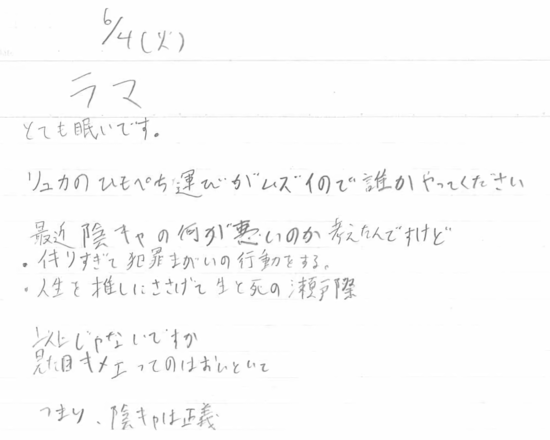 6/4(火)
ラマ
とても眠いです。
リュカのひもぺち運びがムズイので誰かやってください
最近陰キャの何が悪いのか考えたんですけど
・イキりすぎて犯罪まがいの行動をする。
・人生を推しにささげて生と死の瀬戸際
じゃないですか
見た目キメエってのはおいといて
つまり、陰キャは正義